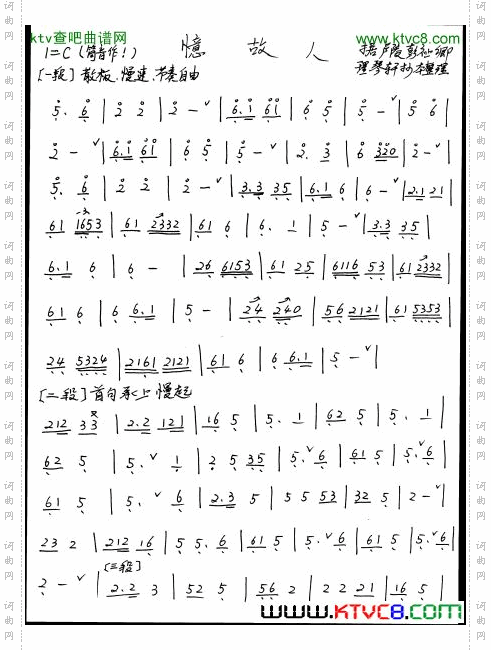 ktv查吧曲谱网
http://www.ktvc8.com
1=C (筒音作1) 憶 故 人
[一段] 散板、慢速、节奏自由
5. 6 | 2 2 | 2 - ∨ | 6.1 61 | 6 5 | 5 - ∨ | 5 6 |
2 - ∨ | 6.1 61 | 6 5 | 5 - ∨ | 2. 3 | 6 320 | 2 - ∨ |
5. 6 | 2 2 | 2 - ∨ | 3.3 35 | 6.1 6 | 6 - ∨ | 2.1 21 |
61 1653 | 61 2332 | 61 6 | 6. 1 | 5 - ∨ | 3.3 35 |
6.1 6 | 6 - | 26 6153 | 61 25 | 6116 53 | 61 2332 |
61 6 | 6 6.1 | 5 - | 24 240 | 56 2121 | 61 5353 |
24 5324 | 2161 2121 | 61 6 | 6 6.1 | 5 - ∨ |
[二段] 首句承上慢起
212 33 | 2.2 121 | 16 5 | 5. 1 | 62 5 | 5. 1 |
62 5 | 5. ∨ 1 | 2 5 35 | 5. ∨ 6 | 61 5 | 5. ∨ 6 |
61 5 | 5. ∨ 6 | 2.3 5 | 5 5 53 | 32 5 | 2 - ∨ |
23 2 | 212 16 | 5 5. 6 | 61 5 | 5. ∨ 6 | 61 5 | 5. ∨ 6 |
[三段]
2 - ∨ | 2.2 3 | 52 5 | 56 2 | 2 2 21 | 16 5 |
www.KTVC8.com
词曲网
词曲网